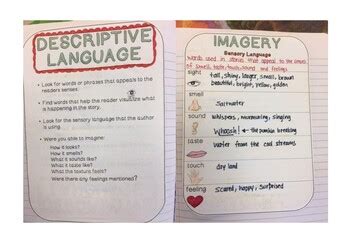 DESCRIPTIVE
LANGUAGE
• Look for words or phrases that appeals to the
readers senses.
• Find words that help the reader visualize what
is happening in the story.
• Look for the sensory language that the author
is using.
• Were you able to imagine:
How it looks?
How it smells?
What it sounds like?
What it tastes like?
What the texture feels?
Were there any feelings mentioned?
IMAGERY
Sensory Language
words used in stories that appeal to the senses
of smell, taste, touch, sound and feelings.
sight
tall, shiny, larger, small, brown
beautiful, bright, yellow, golden
smell
Saltwater
sound
whispers, murmuring, singing
Whoosh! the pumpkin breaking
taste
water from the cool streams
touch
dry land
feeling
scared, happy, surprised